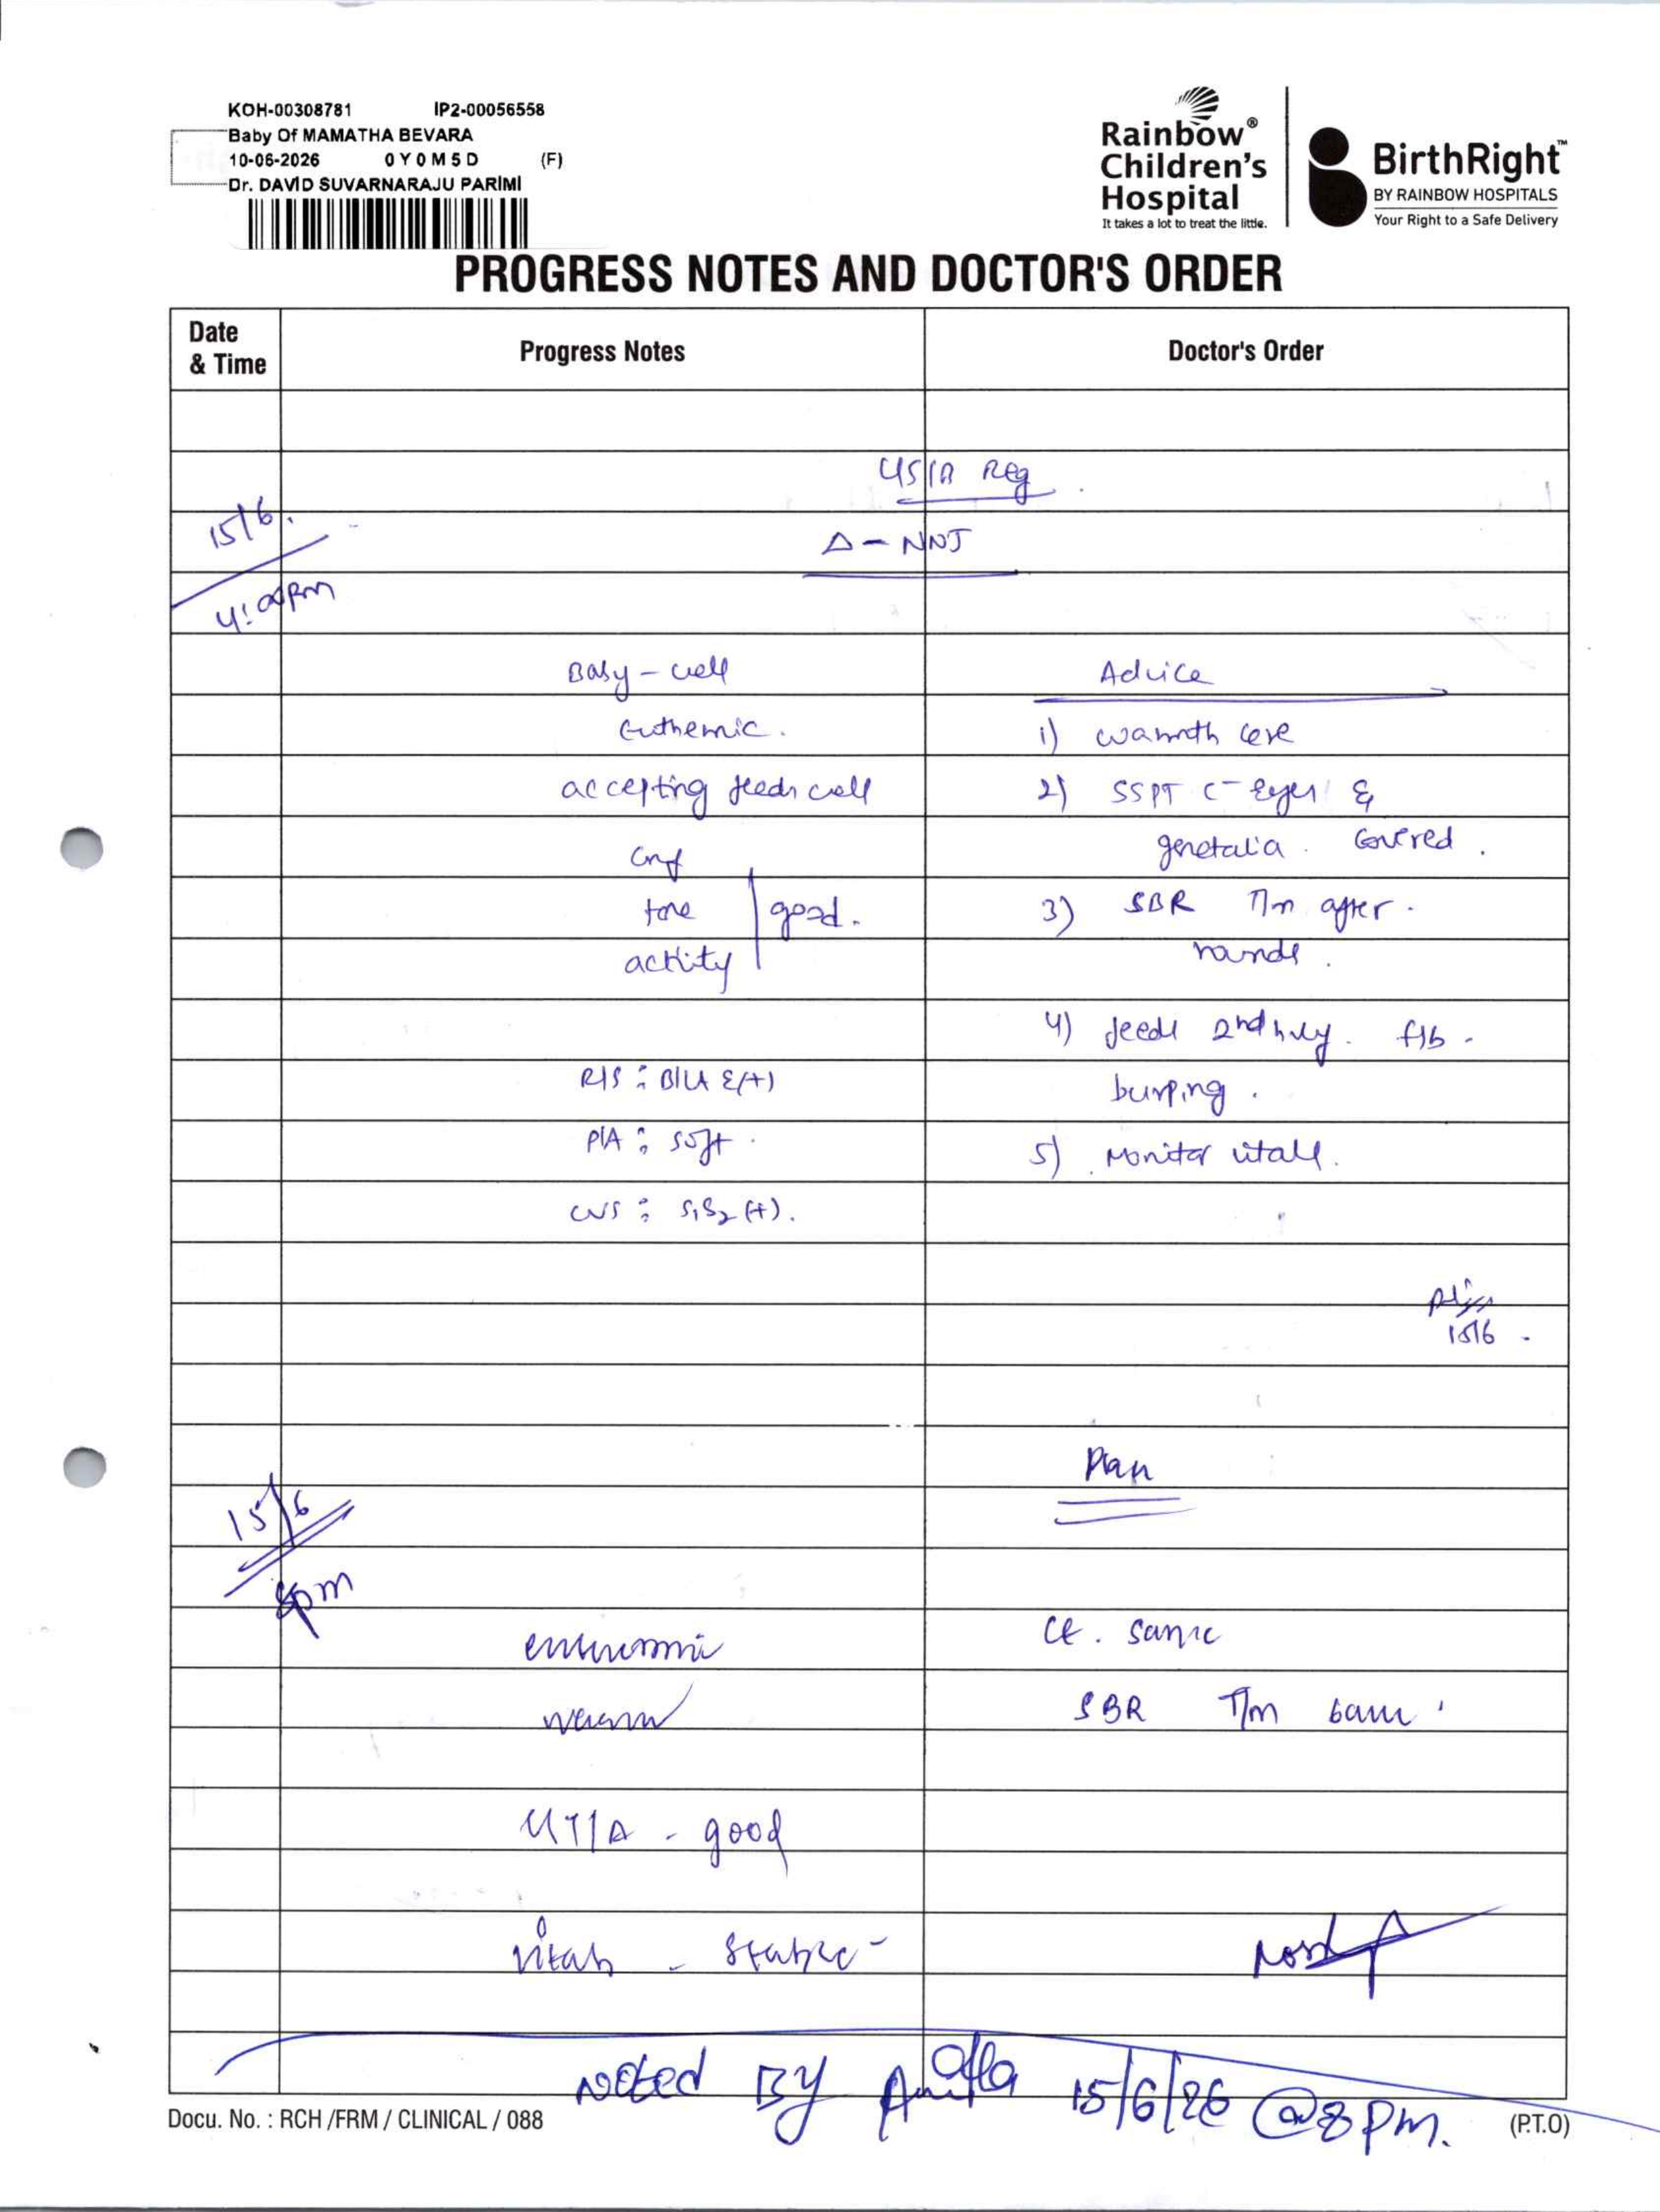 KOH-00308781 IP2-00056558
Baby Of MAMATHA BEVARA
10-06-2026 0Y0M5D (F)
Dr. DAVID SUVARNARAJU PARIMI
Rainbow®
Children's
Hospital
It takes a lot to treat the little.
BirthRight™
BY RAINBOW HOSPITALS
Your Right to a Safe Delivery
PROGRESS NOTES AND DOCTOR'S ORDER
Date & Time Progress Notes Doctor's Order
Reg
15/6. Δ - NNJ
4:00pm
Baby - well Advice
Euthemic. 1) warmth care
accepting feeds well 2) SSPT c̄ eyes &
genetalia. Covered.
Cry
tone good. 3) SBR T/m after.
activity rounds.
4) feeds 2nd hrly. f/b.
R/S : B/L A E(+) burping.
P/A : soft. 5) Monitor vitals.
CVS : S1S2 (+).
15/6.
Plan
15/6
8pm
Ct. same
warm SBR T/m 6am
/T/A - good
vitals - stable -
Noted By 15/6/26 @8pm.
Docu. No. : RCH /FRM / CLINICAL / 088 (P.T.O)